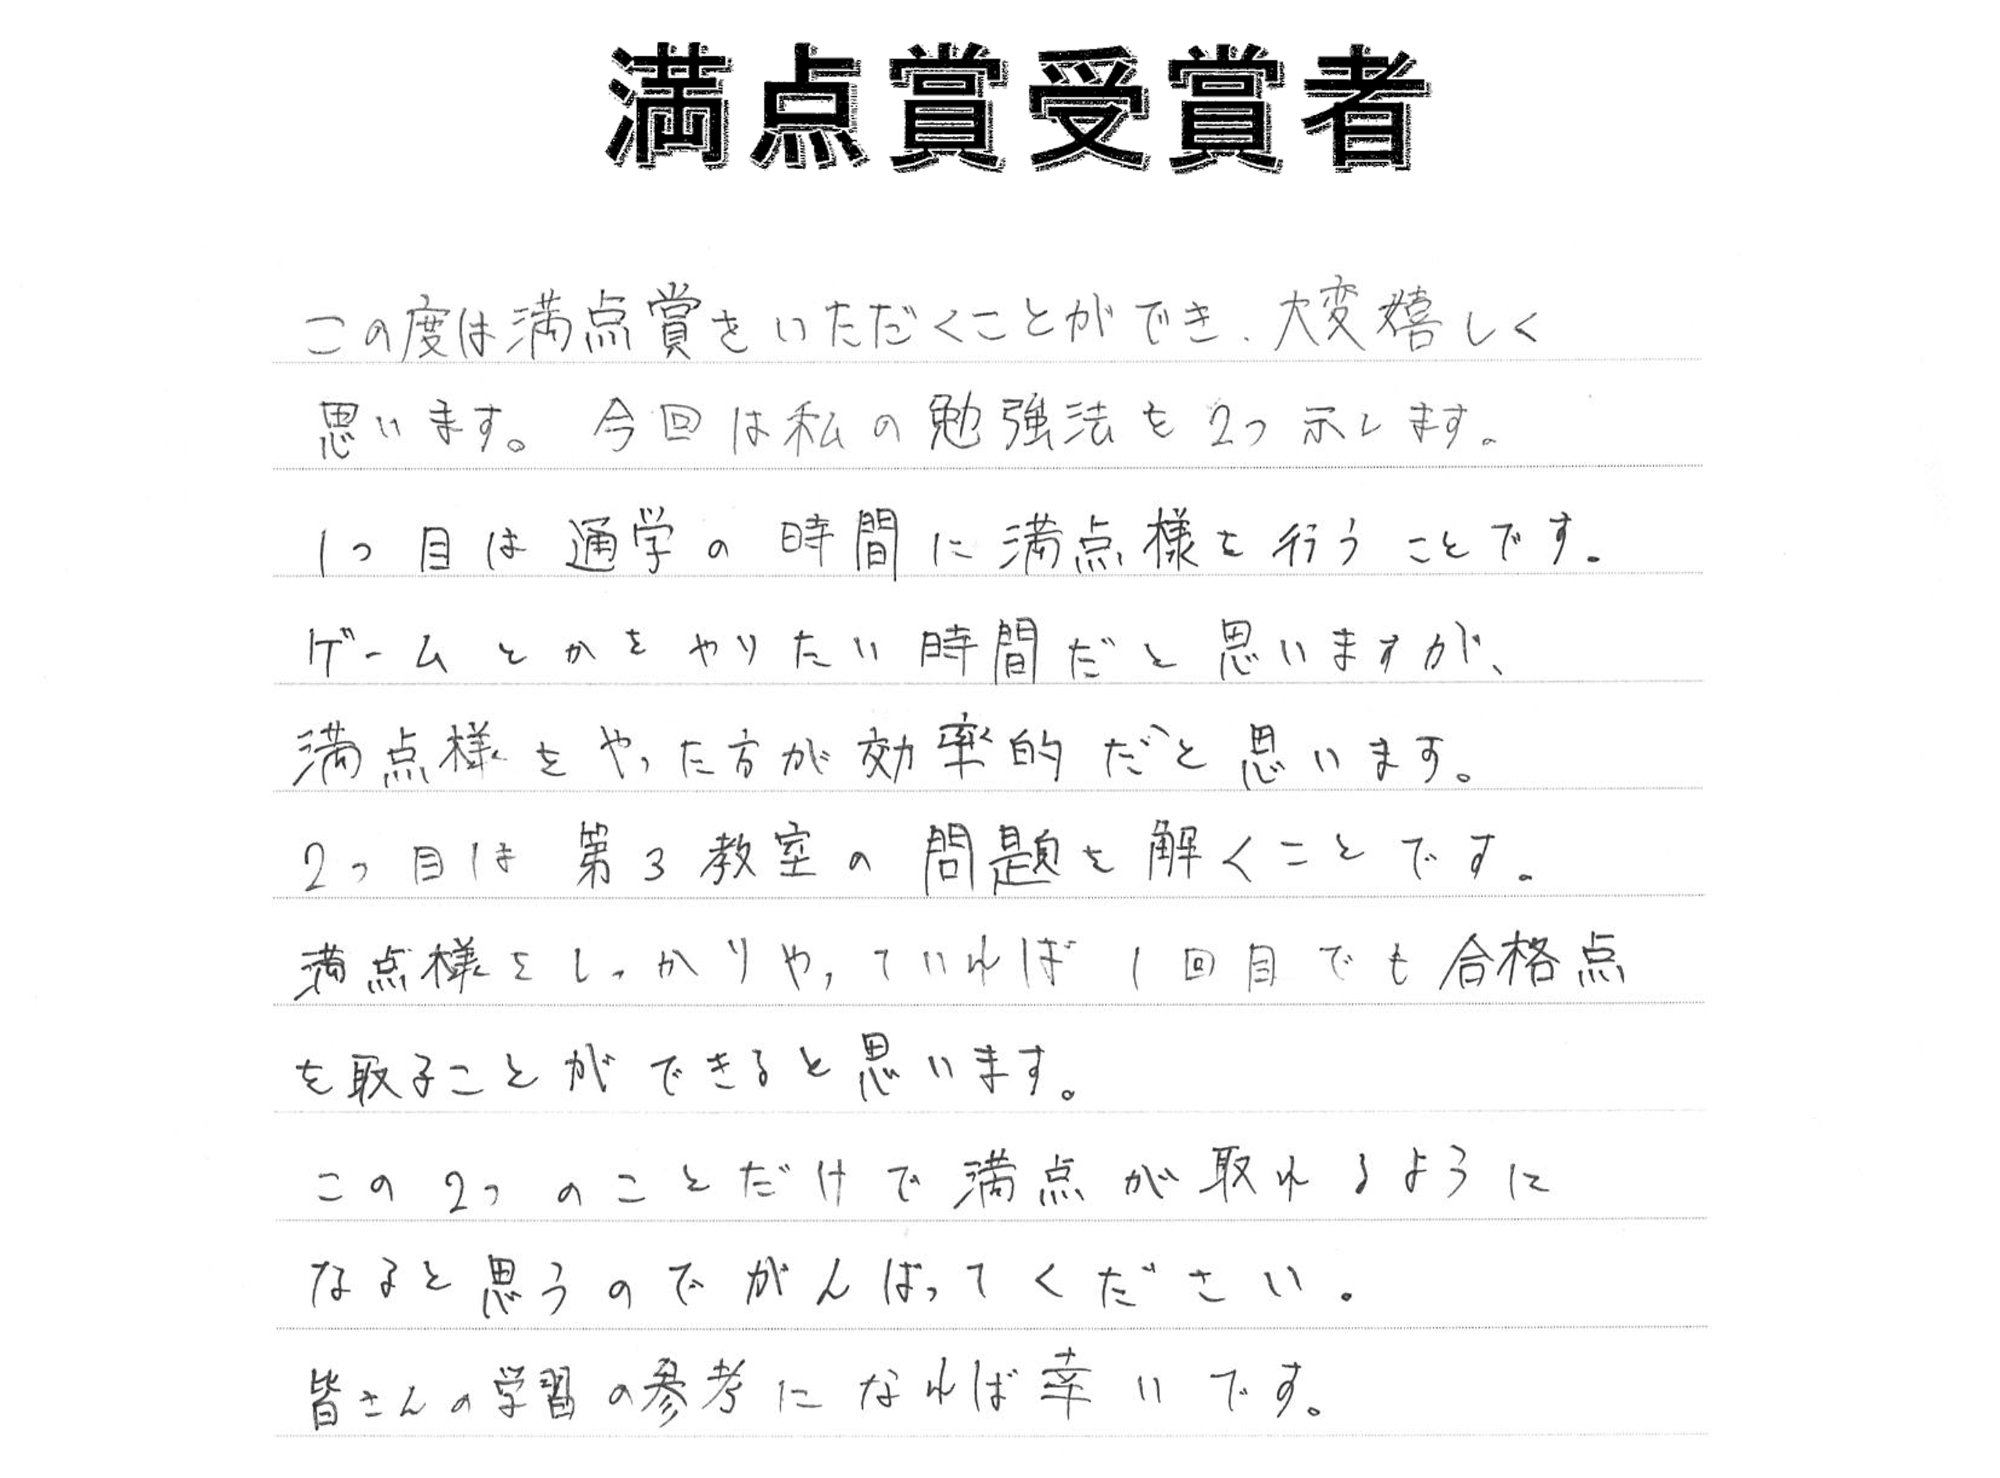 満点賞受賞者
この度は満点賞をいただくことができ、大変嬉しく
思います。今回は私の勉強法を2つ示します。
1つ目は通学の時間に満点様を行うことです。
ゲームとかをやりたい時間だと思いますが、
満点様をやった方が効率的だと思います。
2つ目は第3教室の問題を解くことです。
満点様をしっかりやっていれば1回目でも合格点
を取ることができると思います。
この2つのことだけで満点が取れるように
なると思うのでがんばってください。
皆さんの学習の参考になれば幸いです。